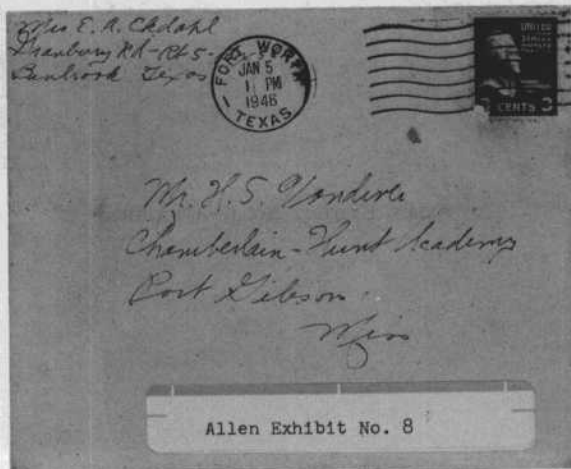 Mrs E. A. Ekdahl
Granbury Rd - Rt 5 -
Benbrook Texas
FORT WORTH
JAN 5
1 PM
1946
TEXAS
UNITED
STATES
CENTS 3
Mr. H. S. Vandiver
Chamberlain-Hunt Academy
Port Gibson
Miss
Allen Exhibit No. 8